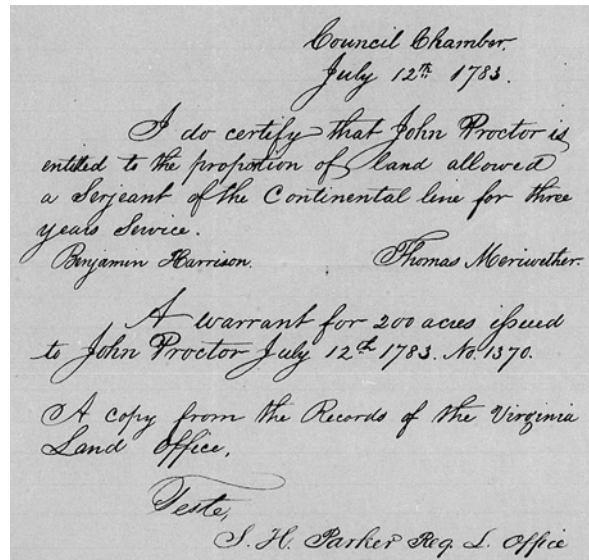 Council Chamber.
July 12th 1783.
I do certify that John Proctor is
entitled to the proportion of land allowed
a Serjeant of the Continental line for three
years Service.
Benjamin Harrison. Thomas Meriwether.
A warrant for 200 acres issued
to John Proctor July 12th 1783. No. 1370.
A copy from the Records of the Virginia
Land Office,
Teste,
S. H. Parker Reg. L. Office